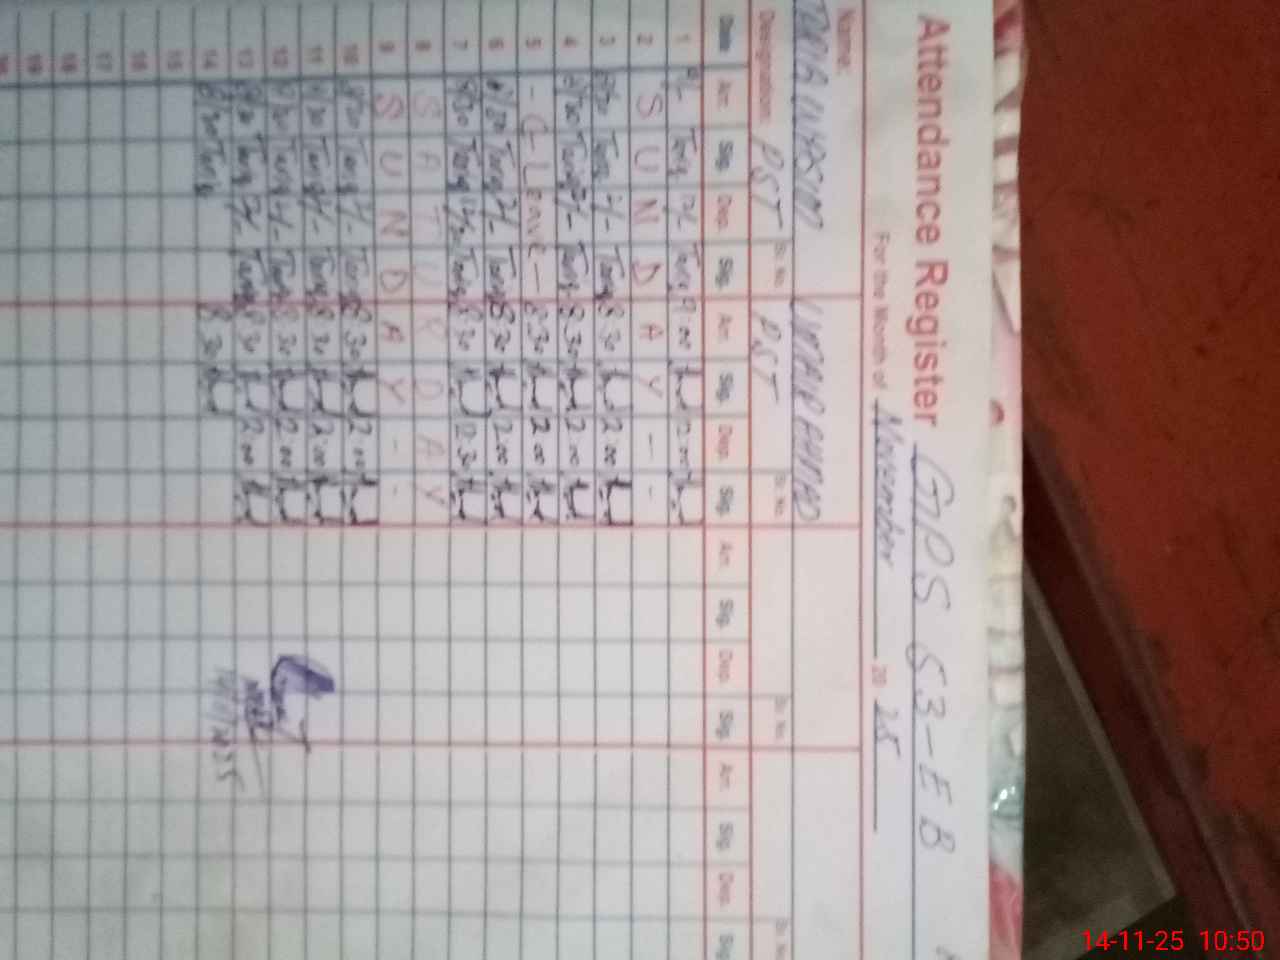 Attendance Register GPS 53-EB
For the Month of November 2025
Name: UMAIR AHMAD
Designation PST Sr. No. PST Sr. No. Sr. No. Sr. No.
Date Arr. Sig. Dep. Sig. Arr. Sig. Dep. Sig. Arr. Sig. Dep. Sig. Arr. Sig. Dep. Sig.
1 9:00 12:00
2 S U N D A Y - -
3 8/30 Tariq 2/- Tariq 8:30 2:00
4 8/30 Tariq 2/- Tariq 8:30 2:00
5 - C-Leave - 8:30 2:00
6 8/30 Tariq 2/- Tariq 8:30 2:00
7 8/30 Tariq 12/30 Tariq 8:30 12:30
8 S A T U R D A Y
9 S U N D A Y - -
10 8/30 Tariq 2/- Tariq 8:30 2:00
11 8/30 Tariq 2/- Tariq 8:30 2:00
12 8/30 Tariq 2/- Tariq 8:30 2:00
13 8/30 Tariq 2/- Tariq 8:30 2:00
14 8/30 Tariq 8:30
15
16
17
18
19
14-11-25 10:50